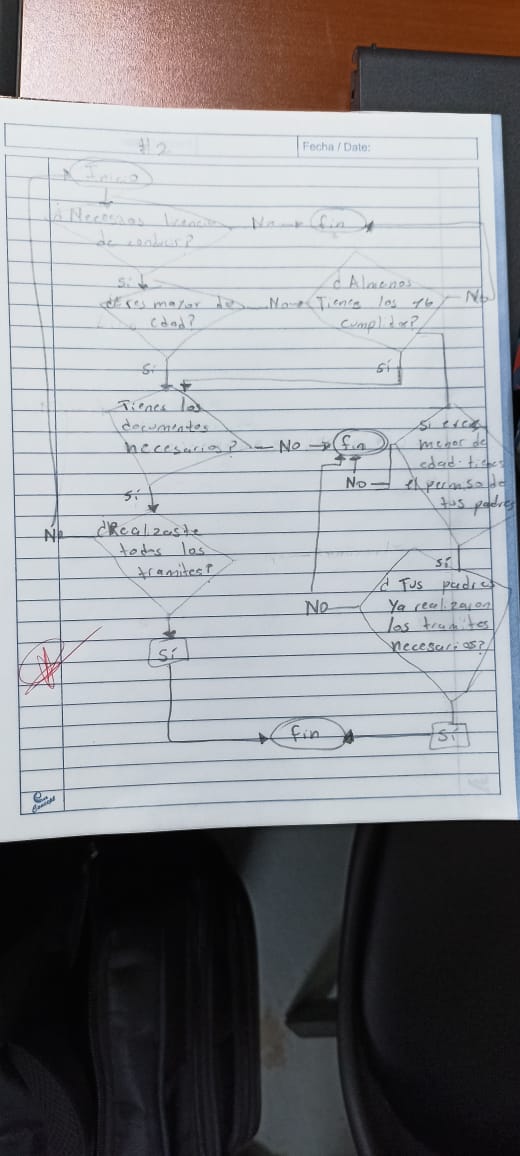 #2
Fecha / Date:
Inicio
¿Necesitas licencia
de conducir?
No
fin
Sí
¿Eres mayor de
edad?
No
¿Almenos
Tienes los 16
cumplidos?
No
Sí
Sí
Tienes los
documentos
necesarios?
No
fin
Si eres
menor de
edad tienes
el permiso de
tus padres
No
Sí
No
¿Realizaste
todos los
tramites?
Sí
¿Tus padres
Ya realizaron
los tramites
necesarios?
No
Sí
fin
Sí